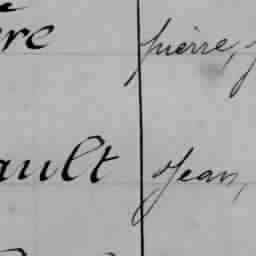 ere pierre,
ault Jean,